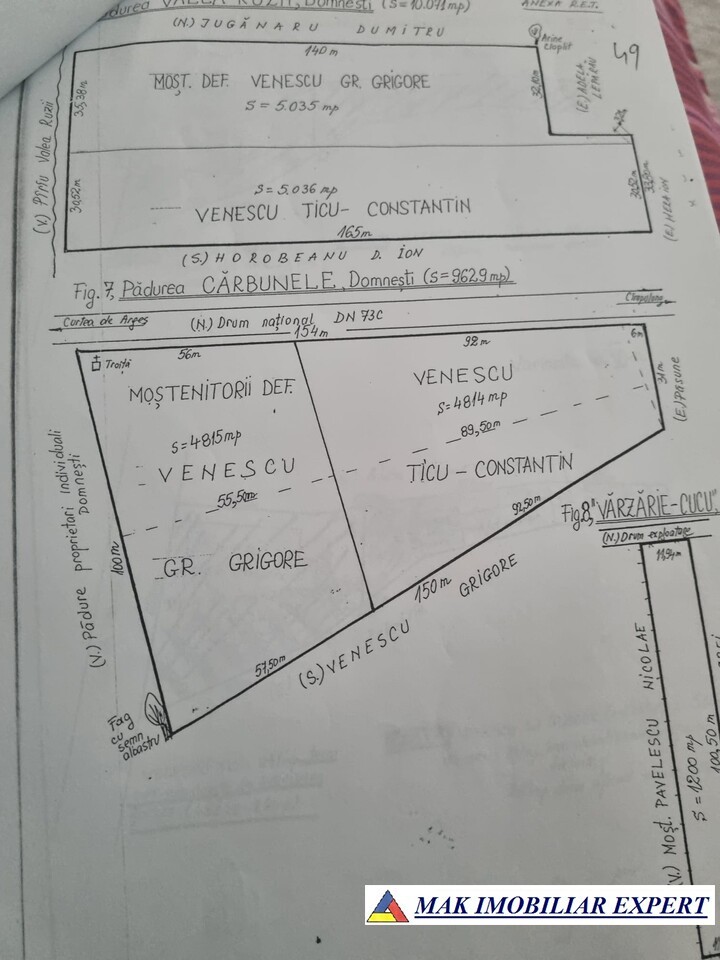 Pădurea VALEA RUZII, Domnești (S=10.071 mp)
ANEXA
(N.) JUGĂNARU DUMITRU
49
140 m
Arine
cioplit
MOȘT. DEF. VENESCU GR. GRIGORE
S = 5.035 mp
35,38m
32,10m
(E.) ADELA
(V.) Pîrîu Valea Ruzii
S = 5.036 mp
30,52m
30,52m
VENESCU TICU - CONSTANTIN
165m
(S.) HOROBEANU D. ION
Fig. 7, Pădurea CĂRBUNELE, Domnești (S=9629 mp)
Curtea de Argeș
(N.) Drum național DN 73C
Cîmpulung
154m
56m
92m
6m
Troiță
31m
(E.) Pășune
MOȘTENITORII DEF.
VENESCU
S=4815mp
S=4814mp
VENESCU
89,50m
TICU - CONSTANTIN
55,50m
92,50m
(V.) Pădure proprietari individuali
Domnești
100m
GR. GRIGORE
150m
57,50m
(S.) VENESCU GRIGORE
Fag
cu
semn
albastru
Fig. 8, "VĂRZĂRIE-CUCU"
(N.) Drum exploatare
11,94m
(V.) Moșt. PAVELESCU NICOLAE
S = 1200 mp
100,50 m
MAK IMOBILIAR EXPERT